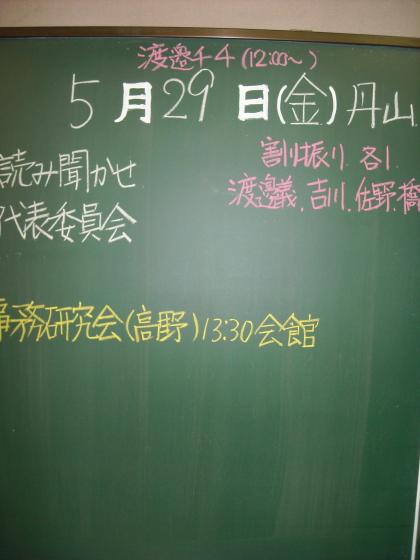 渡邉千4(12:00~)
5月29日(金)丹山
割り振り 各1
渡邉義.吉川.佐野.橋
読み聞かせ
代表委員会
事務研究会(高野)13:30会館